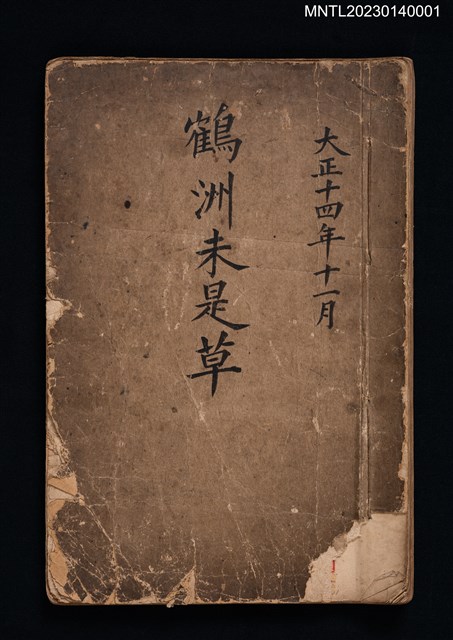 MNTL20230140001
大正十四年十一月
鶴洲未是草